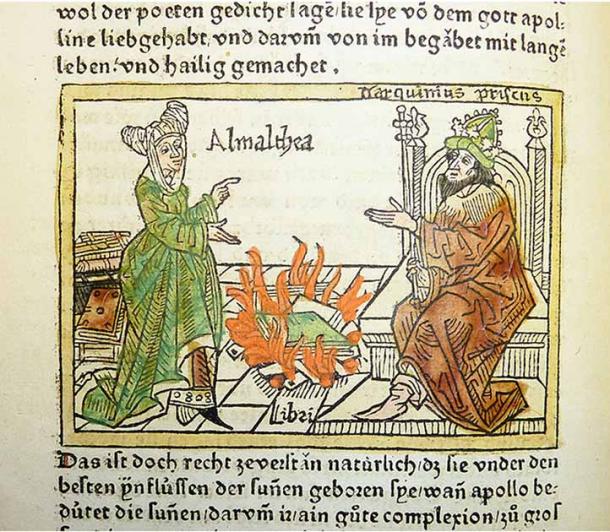 wol der poeten gedicht lage͂ sie sye vo͂ dem gott apol⸗
line liebgehabt, vnd darvm̄ von im begȧbet mit lange͂
leben/vnd hailig gemachet.
Tarquinius priscus
Almalthea
Libri
Das ist doch recht zeverstȧn natúrlich/dz sie vnder den
besten ẏnflússen der suñen geboren sye/wañ apollo be⸗
dútet die suñen/darvm̄ ir/ain gůte complexion/zů gros